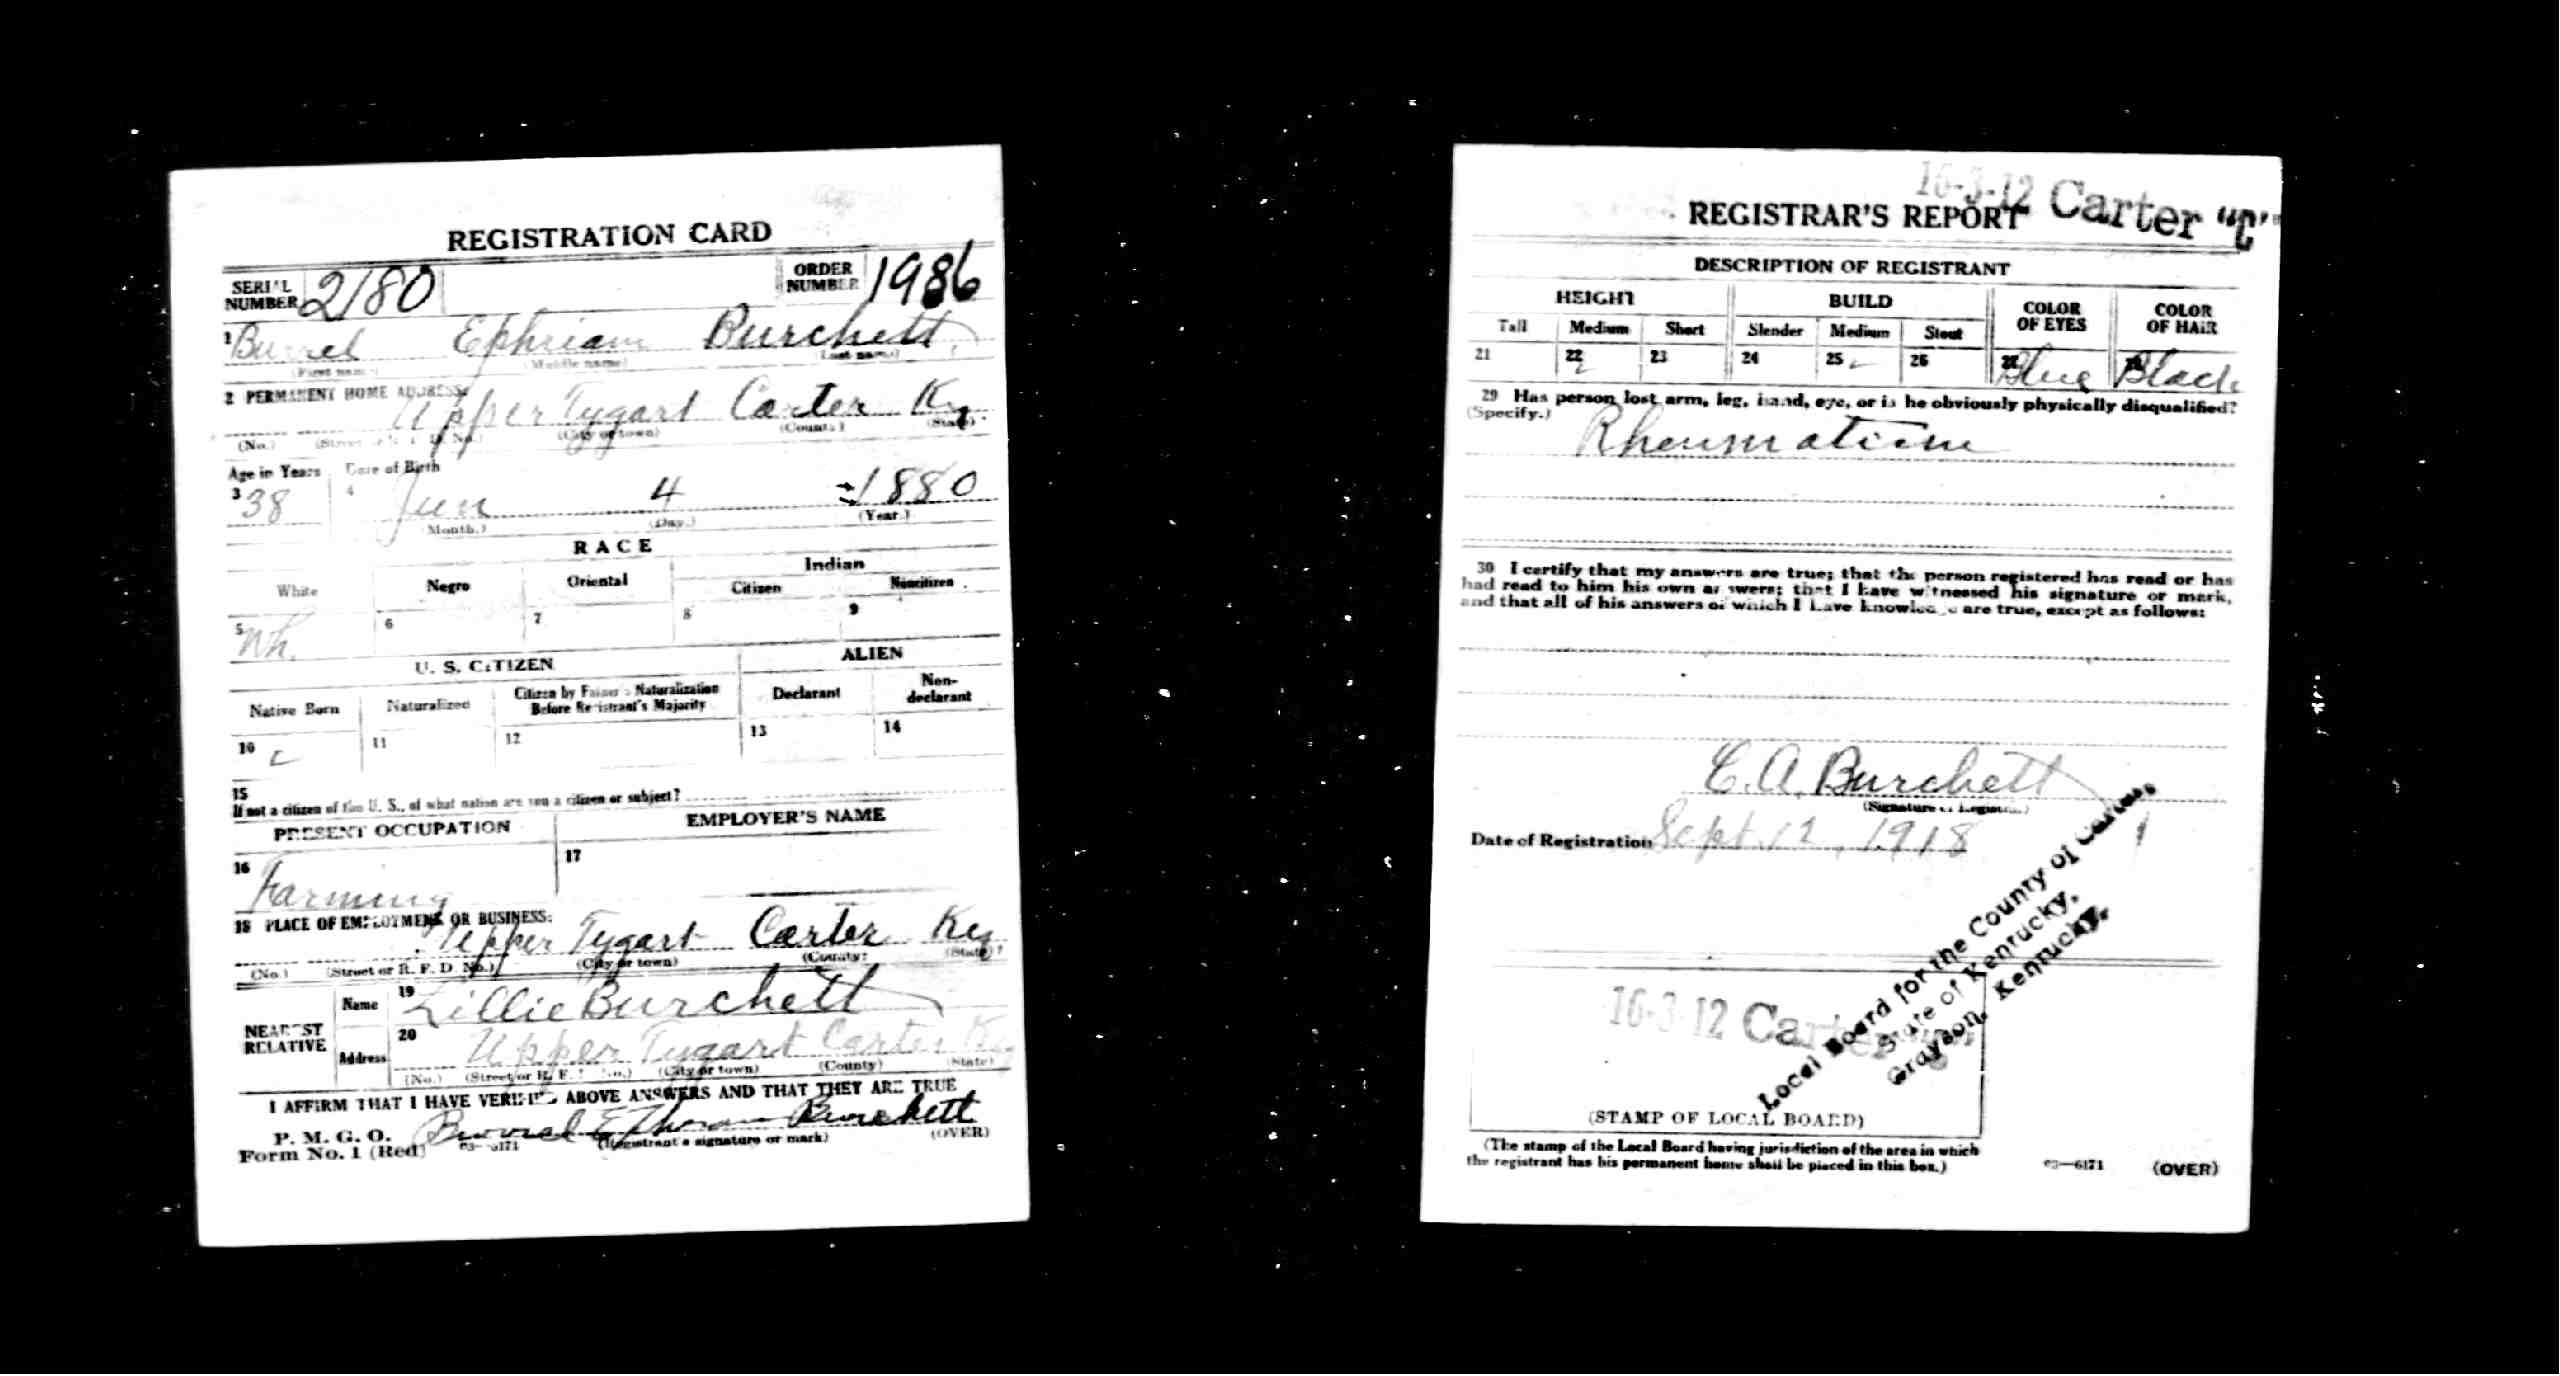 REGISTRATION CARD
SERIAL NUMBER 2180 ORDER NUMBER 1986
1 Burrel Ephriam Burchett
(First name) (Middle name) (Last name)
2 PERMANENT HOME ADDRESS:
Upper Tygart Carter Ky.
(No.) (Street or R. F. D. No.) (City or town) (County) (State)
Age in Years Date of Birth
3 38 4 Jun 4 1880
(Month.) (Day.) (Year.)
RACE
White Negro Oriental Indian
Citizen Noncitizen
5 Wh. 6 7 8 9
U. S. CITIZEN ALIEN
Native Born Naturalized Citizen by Father's Naturalization Before Registrant's Majority Declarant Non-declarant
10 11 12 13 14
15
If not a citizen of the U. S., of what nation are you a citizen or subject?
PRESENT OCCUPATION EMPLOYER'S NAME
16 Farming 17
18 PLACE OF EMPLOYMENT OR BUSINESS:
Upper Tygart Carter Ky
(No.) (Street or R. F. D. No.) (City or town) (County) (State)
NEAREST RELATIVE Name 19 Lillie Burchett
Address 20 Upper Tygart Carter Ky
(No.) (Street or R. F. D. No.) (City or town) (County) (State)
I AFFIRM THAT I HAVE VERIFIED ABOVE ANSWERS AND THAT THEY ARE TRUE
P. M. G. O.
Form No. 1 (Red) 03—6171 (Registrant's signature or mark) (OVER)
Burchett
16-3-12 Carter "C"
REGISTRAR'S REPORT
DESCRIPTION OF REGISTRANT
HEIGHT BUILD COLOR OF EYES COLOR OF HAIR
Tall Medium Short Slender Medium Stout
21 22 23 24 25 26 27 Blue 28 Black
29 Has person lost arm, leg, hand, eye, or is he obviously physically disqualified?
(Specify.)
Rheumatism
30 I certify that my answers are true; that the person registered has read or has
had read to him his own answers; that I have witnessed his signature or mark,
and that all of his answers of which I have knowledge are true, except as follows:
C. A. Burchett
(Signature of Registrar)
Date of Registration Sept. 12, 1918
Local Board for the County of Carter,
State of Kentucky,
Grayson, Kentucky.
16-3-12 Carter
(STAMP OF LOCAL BOARD)
(The stamp of the Local Board having jurisdiction of the area in which
the registrant has his permanent home shall be placed in this box.)
03—6171 (OVER)